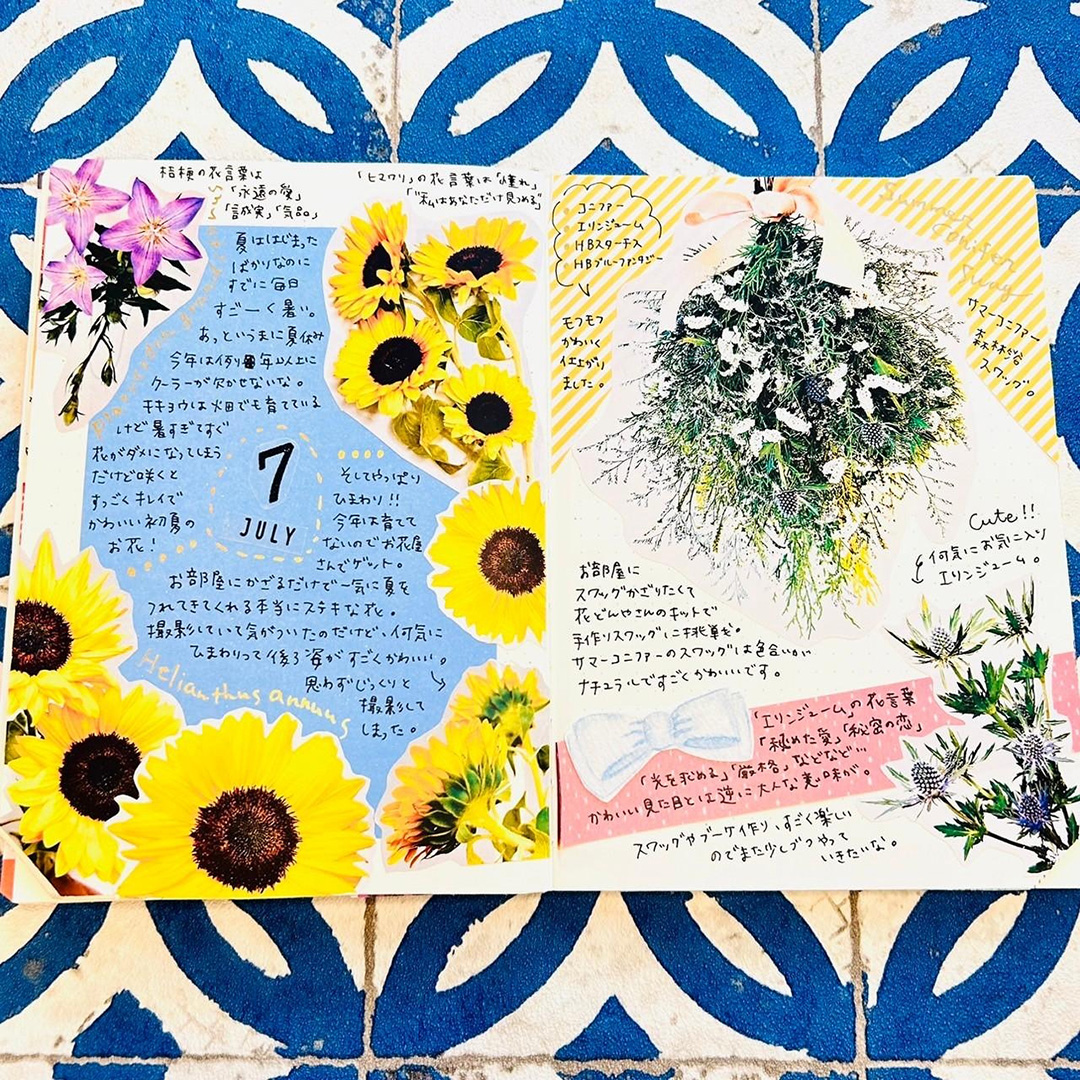 桔梗の花言葉は
「永遠の愛」
「誠実」「気品」
「ヒマワリ」の花言葉は「憧れ」
「私はあなただけ見つめる」
夏ははじまった
ばかりなのに
すでに毎日
すごーく暑い。
あっというまに夏休み
今年は例年以上に
クーラーが欠かせないな。
キキョウは畑でも育てている
けど暑すぎてすぐ
花がダメになってしまう
だけど咲くと
すっごくキレイで
かわいい初夏の
お花!
7
JULY
そしてやっぱり
ひまわり!!
今年は育てて
ないのでお花屋
さんでゲット。
お部屋にかざるだけで一気に夏を
つれてきてくれる本当にステキな花。
撮影していて気がついたのだけど、何気に
ひまわりって後ろ姿がすごくかわいい。
思わずじっくりと
撮影して
しまった。
Helianthus annuus
コニファー
エリンジューム
HBスターチス
HBブルーファンタジー
モフモフ
かわいく
仕上がり
ました。
Summer
Conifer
Swag
サマーコニファー
森林浴
スワッグ。
Cute!!
何気にお気に入り
エリンジューム。
お部屋に
スワッグかざりたくて
花どんやさんのキットで
手作りスワッグに挑戦。
サマーコニファーのスワッグは色合いが
ナチュラルですごくかわいいです。
「エリンジューム」の花言葉
「秘めた愛」「秘密の恋」
「光を求める」「厳格」などなど…
かわいい見た目とは逆に大人な意味が。
スワッグやブーケ作り、すごく楽しい
のでまた少しづつやって
いきたいな。